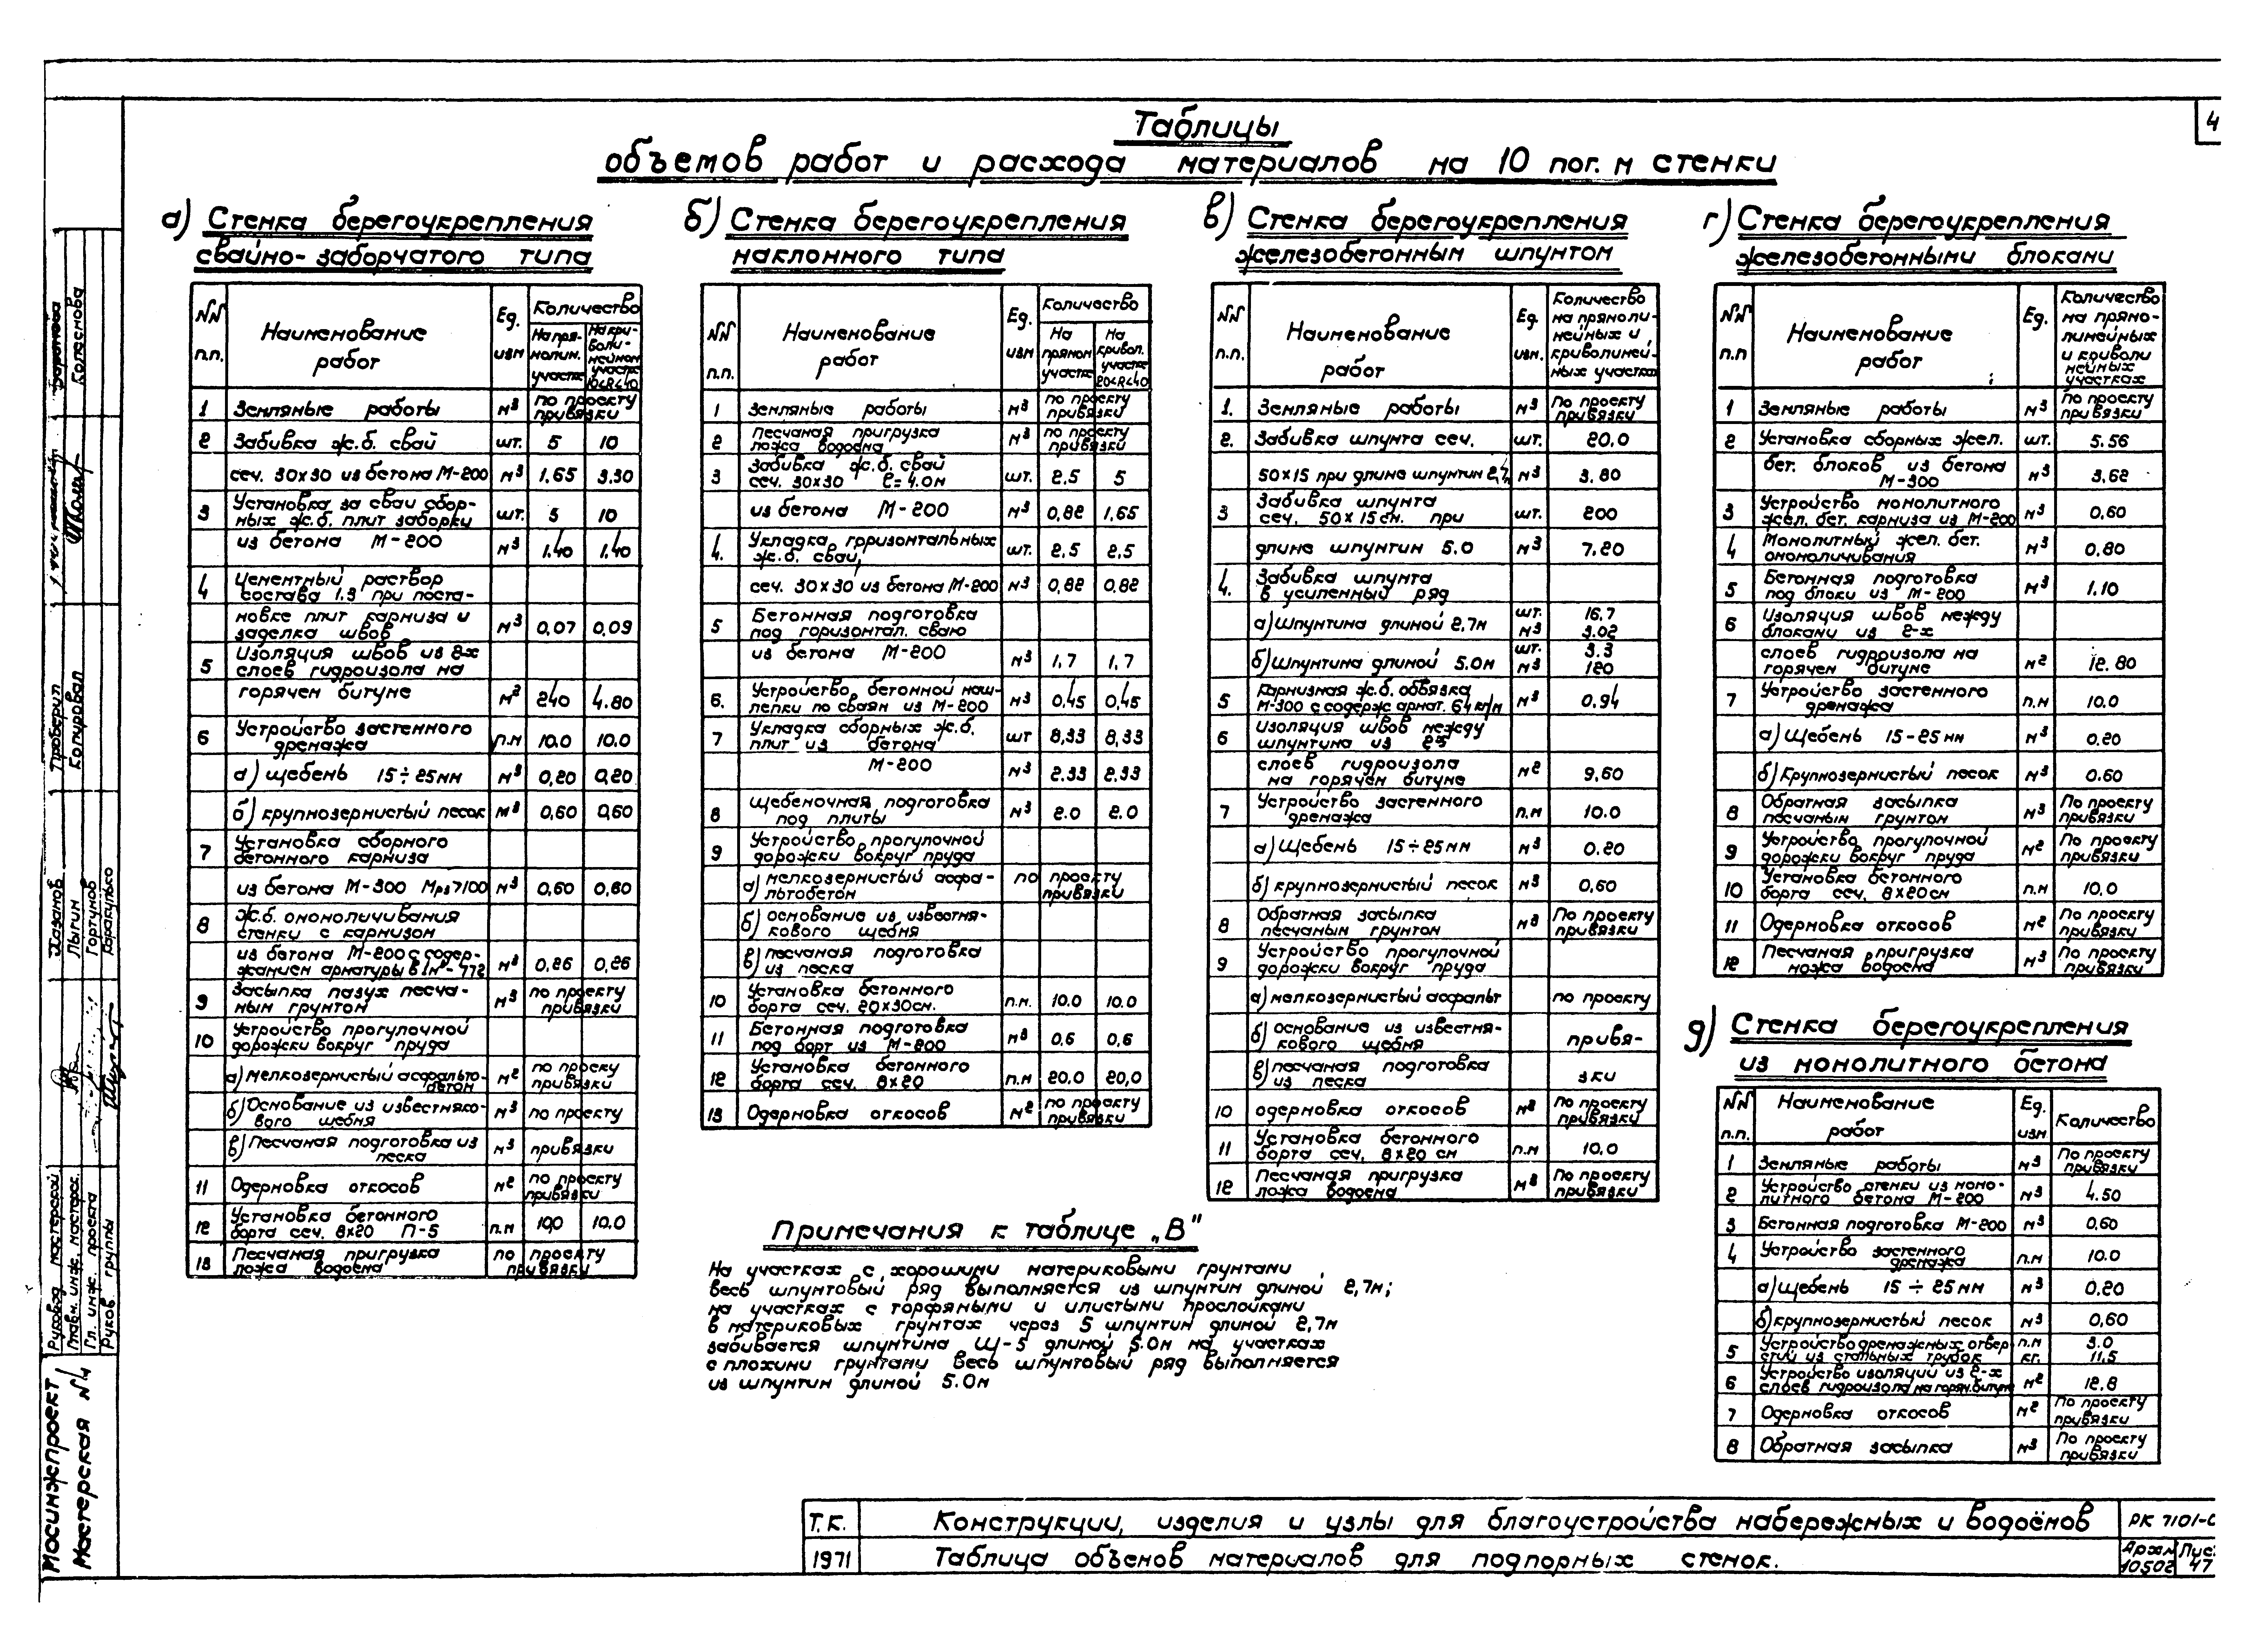 4
Таблицы
объемов работ и расхода материалов на 10 пог. м стенки
а) Стенка берегоукрепления
свайно-заборчатого типа
NN п.п. | Наименование работ | Ед. изм | Количество
На прямолин. участке | На криволинейном участке 10<R<40
1 Земляные работы м³ по проекту привязки
2 Забивка ж.б. свай шт. 5 10
сеч. 30х30 из бетона М-200 м³ 1.65 3.30
3 Установка за сваи сборных ж.б. плит заборки шт. 5 10
из бетона М-200 м³ 1.40 1.40
4 Цементный раствор состава 1:3 при поста-
новке плит карниза и заделка швов м³ 0,07 0,09
5 Изоляция швов из 2-х слоев гидроизола на
горячем битуме м² 240 4.80
6 Устройство застенного дренажа п.м 10.0 10.0
а) щебень 15÷25мм м³ 0,20 0,20
б) крупнозернистый песок м³ 0,60 0,60
7 Установка сборного бетонного карниза
из бетона М-300 Мрз 7100 м³ 0,60 0,60
8 Ж.б. омоноличивания стенки с карнизом
из бетона М-200 с содержанием арматуры в 1м³-77г м³ 0,26 0,26
9 Засыпка пазух песчаным грунтом м³ по проекту привязки
10 Устройство прогулочной дорожки вокруг пруда
а) мелкозернистый асфальтобетон м² по проекту привязки
б) Основание из известнякового щебня м³ по проекту
в) Песчаная подготовка из песка м³ привязки
11 Одерновка откосов м² по проекту привязки
12 Установка бетонного борта сеч. 8х20 П-5 п.м 10,0 10.0
13 Песчаная пригрузка ложа водоема по проекту привязки
б) Стенка берегоукрепления
наклонного типа
NN п.п. | Наименование работ | Ед. изм | Количество
На прямом участке | На кривол. участке 20<R<40
1 Земляные работы м³ по проекту привязки
2 Песчаная пригрузка ложа водоема м³ по проекту привязки
3 Забивка ж.б. свай сеч. 30х30 ℓ=4.0м шт. 2.5 5
из бетона М-200 м³ 0,82 1,65
4. Укладка горизонтальных ж.б. свай, шт. 2.5 2.5
сеч. 30х30 из бетона М-200 м³ 0,82 0.82
5 Бетонная подготовка под горизонтал. сваю
из бетона М-200 м³ 1,7 1,7
6. Устройство бетонной нашлепки по сваям из М-200 м³ 0,45 0,45
7 Укладка сборных ж.б. плит из бетона шт 8,33 8,33
М-200 м³ 2.33 2.33
8 Щебеночная подготовка под плиты м³ 2.0 2.0
9 Устройство прогулочной дорожки вокруг пруда
а) мелкозернистый асфальтобетон по проекту привязки
б) основание из известнякового щебня
в) песчаная подготовка из песка
10 Установка бетонного борта сеч. 20х30см. п.м. 10.0 10.0
11 Бетонная подготовка под борт из М-200 м³ 0,6 0,6
12 Установка бетонного борта сеч. 8х20 п.м 20.0 20,0
13 Одерновка откосов м² по проекту привязки
в) Стенка берегоукрепления
железобетонным шпунтом
NN п.п. | Наименование работ | Ед. изм. | Количество на прямолинейных и криволинейных участках
1. Земляные работы м³ По проекту привязки
2. Забивка шпунта сеч. шт. 20.0
50х15 при длине шпунтин 2,7 м³ 3.80
3 Забивка шпунта сеч. 50х15см. при шт. 200
длине шпунтин 5.0 м³ 7.20
4. Забивка шпунта в усиленный ряд
а) Шпунтина длиной 2,7м шт. 16.7 м³ 3.02
б) Шпунтина длиной 5.0м шт. 3.3 м³ 120
5 Карнизная ж.б. обвязка М-300 с содерж армат. 64 кг/м м³ 0.94
6 Изоляция швов между шпунтина из 2х
слоев гидроизола на горячем битуме м² 9,60
7 Устройство застенного дренажа п.м 10.0
а) Щебень 15÷25мм м³ 0.20
б) крупнозернистый песок м³ 0,60
8 Обратная засыпка песчаным грунтом м³ По проекту привязки
9 Устройство прогулочной дорожки вокруг пруда
а) мелкозернистый асфальт по проекту
б) основание из известнякового щебня привя-
в) песчаная подготовка из песка зки
10 одерновка откосов м² По проекту привязки
11 Установка бетонного борта сеч. 8х20 см п.м 10.0
12 Песчаная пригрузка ложа водоема м³ По проекту привязки
г) Стенка берегоукрепления
железобетонными блоками
NN п.п | Наименование работ | Ед. | Количество на прямолинейных и криволинейных участках
1 Земляные работы м³ По проекту привязки
2 Установка сборных жел. шт. 5.56
бет. блоков из бетона М-300 м³ 3,62
3 Устройство монолитного жел. бет. карниза из М-200 м³ 0,60
4 Монолитный жел. бет. омоноличивания м³ 0.80
5 Бетонная подготовка под блоки из М-200 м³ 1.10
6 Изоляция швов между блоками из 2-х
слоев гидроизола на горячем битуме м² 12.80
7 Устройство застенного дренажа п.м 10.0
а) Щебень 15-25мм м³ 0.20
б) Крупнозернистый песок м³ 0.60
8 Обратная засыпка песчаным грунтом м³ По проекту привязки
9 Устройство прогулочной дорожки вокруг пруда м² По проекту привязки
10 Установка бетонного борта сеч. 8х20см п.м 10.0
11 Одерновка откосов м² По проекту привязки
12 Песчаная пригрузка ложа водоема м³ По проекту привязки
д) Стенка берегоукрепления
из монолитного бетона
NN п.п. | Наименование работ | Ед. изм | Количество
1 Земляные работы м³ По проекту привязки
2 Устройство стенки из монолитного бетона М-200 м³ 4.50
3 Бетонная подготовка М-200 м³ 0,60
4 Устройство застенного дренажа п.м 10.0
а) щебень 15÷25мм м³ 0.20
б) крупнозернистый песок м³ 0,60
5 Устройство дренажных отверстий из стальных трубок п.м 3.0 кг. 11.5
6 Устройство изоляции из 2-х слоев гидроизола на горяч. битуме м² 12.8
7 Одерновка откосов м² По проекту привязки
8 Обратная засыпка м³ По проекту привязки
Примечания к таблице „В"
На участках с хорошими материковыми грунтами
весь шпунтовый ряд выполняется из шпунтин длиной 2,7м;
на участках с торфяными и илистыми прослойками
в материковых грунтах через 5 шпунтин длиной 2,7м
забивается шпунтина Ш-5 длиной 5.0м на участках
с плохими грунтами весь шпунтовый ряд выполняется
из шпунтин длиной 5.0м
Т.К. Конструкции, изделия и узлы для благоустройства набережных и водоёмов РК 7101-
1971 Таблица объемов материалов для подпорных стенок. Арх№ 10502 Лис. 47
Мосинжпроект
Мастерская №4
Руковод мастерской Хазанов
Главн. инж. мастерс. Лыгин
Гл. инж. проекта Гортунов
Руков. группы
Проверил
Копировал Коласнова